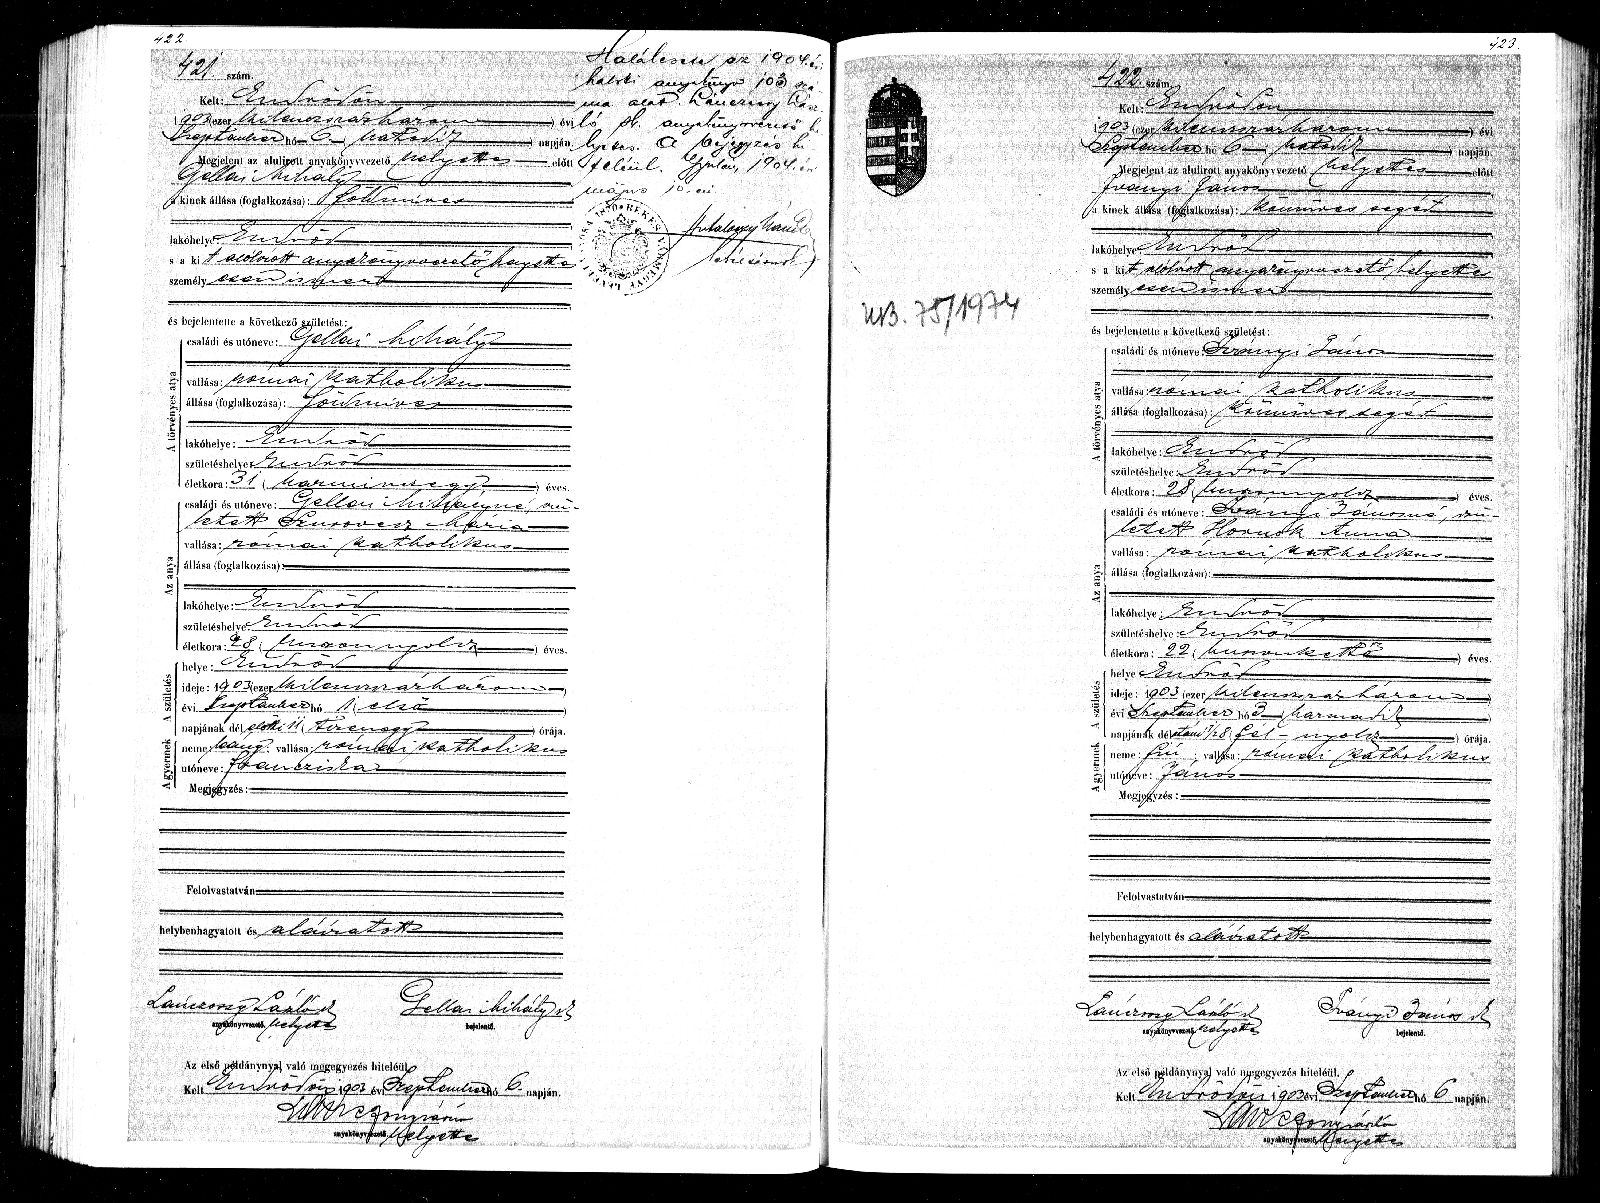 422
421 szám.
Kelt: Endrődön
1903 (ezer kilenczszázhárom) évi
Szeptember hó 6 hatodik napján,
Megjelent az alulirott anyakönyvvezető helyettes előtt
Gellai Mihály
a kinek állása (foglalkozása): földmíves
lakóhelye: Endrőd
s a kit alólirott anyakönyvvezető helyettes
személyesen ismer
és bejelentette a következő születést:
A törvényes atya
családi és utóneve: Gellai Mihály
vallása: római katholikus
állása (foglalkozása): földmíves
lakóhelye: Endrőd
születéshelye: Endrőd
életkora: 31 (harminczegy) éves.
Az anya
családi és utóneve: Gellai Mihályné, szü-
letett Mária
vallása: római katholikus
állása (foglalkozása):
lakóhelye: Endrőd
születéshelye: Endrőd
életkora: 28 (huszonnyolcz) éves.
A születés
helye: Endrőd
ideje: 1903 (ezer kilenczszázhárom)
évi Szeptember hó 1 (első)
napjának dél előtti 11 (tizenegy) órája.
A gyermek
neme: leány; vallása: római katholikus
utóneve: Francziska
Megjegyzés:
Felolvastatván
helybenhagyatott és aláíratott
Lánczossy László sk Gellai Mihály sk
anyakönyvvezető helyettes bejelentő.
Az első példánynyal való megegyezés hiteléül.
Kelt Endrődön 1903 évi Szeptember hó 6 napján.
anyakönyvvezető helyettes
Halálesete az 1904. évi
halotti anyakönyv 103 szá-
ma alatt. Lánczossy Lász-
ló sk. anyakönyvvezető h-
lyettes. A bejegyzés hi-
teléül. Gyulán, 1904. évi
május 10.-én
BÉKÉS VÁRMEGYE LEVÉLTÁRA
423.
422 szám.
Kelt: Endrődön
1903 (ezer kilenczszázhárom) évi
Szeptember hó 6 hatodik napján,
Megjelent az alulirott anyakönyvvezető helyettes előtt
Iványi János
a kinek állása (foglalkozása): kőmíves segéd
lakóhelye: Endrőd
s a kit alólirott anyakönyvvezető helyettes
személyesen ismer
UB. 75/1974
és bejelentette a következő születést:
A törvényes atya
családi és utóneve: Iványi János
vallása: római katholikus
állása (foglalkozása): kőmíves segéd
lakóhelye: Endrőd
születéshelye: Endrőd
életkora: 28 (huszonnyolcz) éves.
Az anya
családi és utóneve: Iványi Jánosné, szü-
letett Hornok Anna
vallása: római katholikus
állása (foglalkozása):
lakóhelye: Endrőd
születéshelye: Endrőd
életkora: 22 (huszonkettő) éves.
A születés
helye Endrőd
ideje: 1903 (ezer kilenczszázhárom)
évi Szeptember hó 3 (harmadik)
napjának dél utáni 1/2 8 fél-nyolcz órája.
A gyermek
neme: fiú; vallása: római katholikus
utóneve: János
Megjegyzés:
Felolvastatván
helybenhagyatott és aláíratott
Lánczossy László sk Iványi János sk
anyakönyvvezető helyettes bejelentő.
Az első példánynyal való megegyezés hiteléül.
Kelt Endrődön 1903 évi Szeptember hó 6 napján.
anyakönyvvezető helyettes